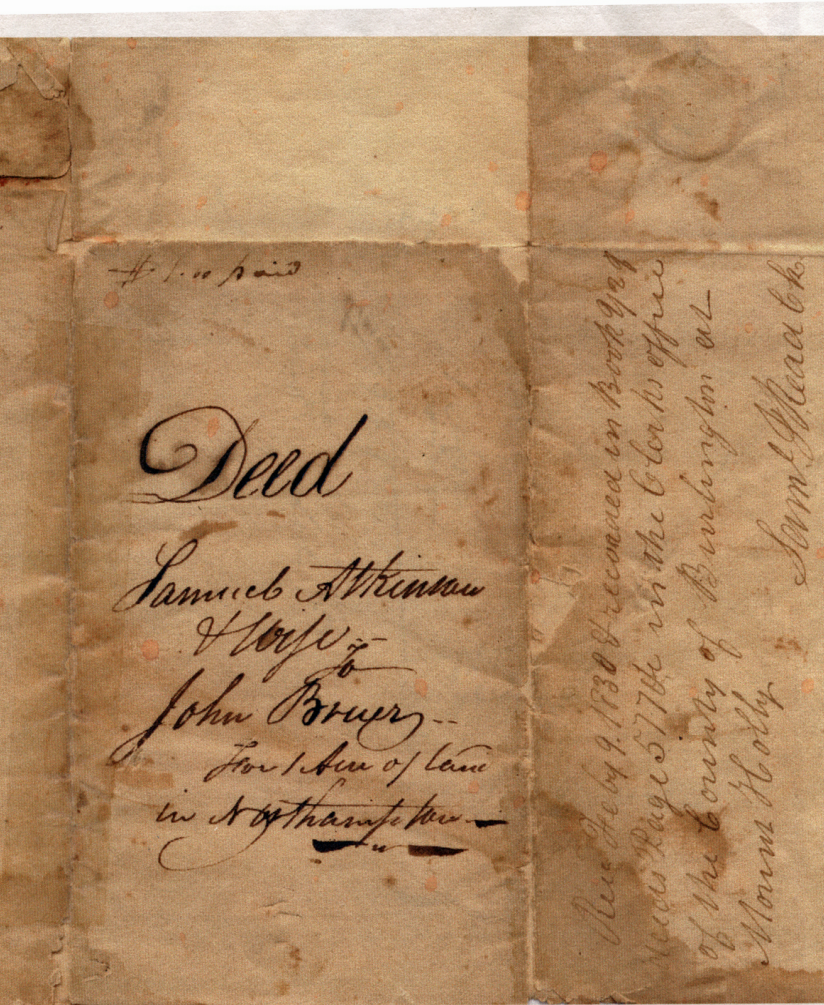 $1.00 paid
Deed
Samuel Atkinson
& Wife
To
John Bruer
For 1 Acre of land
in Northampton
Recd Feby 9. 1830 & recorded in Book
deeds Page 577 &c in the Clerks office
of the County of Burlington at
Mount Holly
Saml J Read Clk